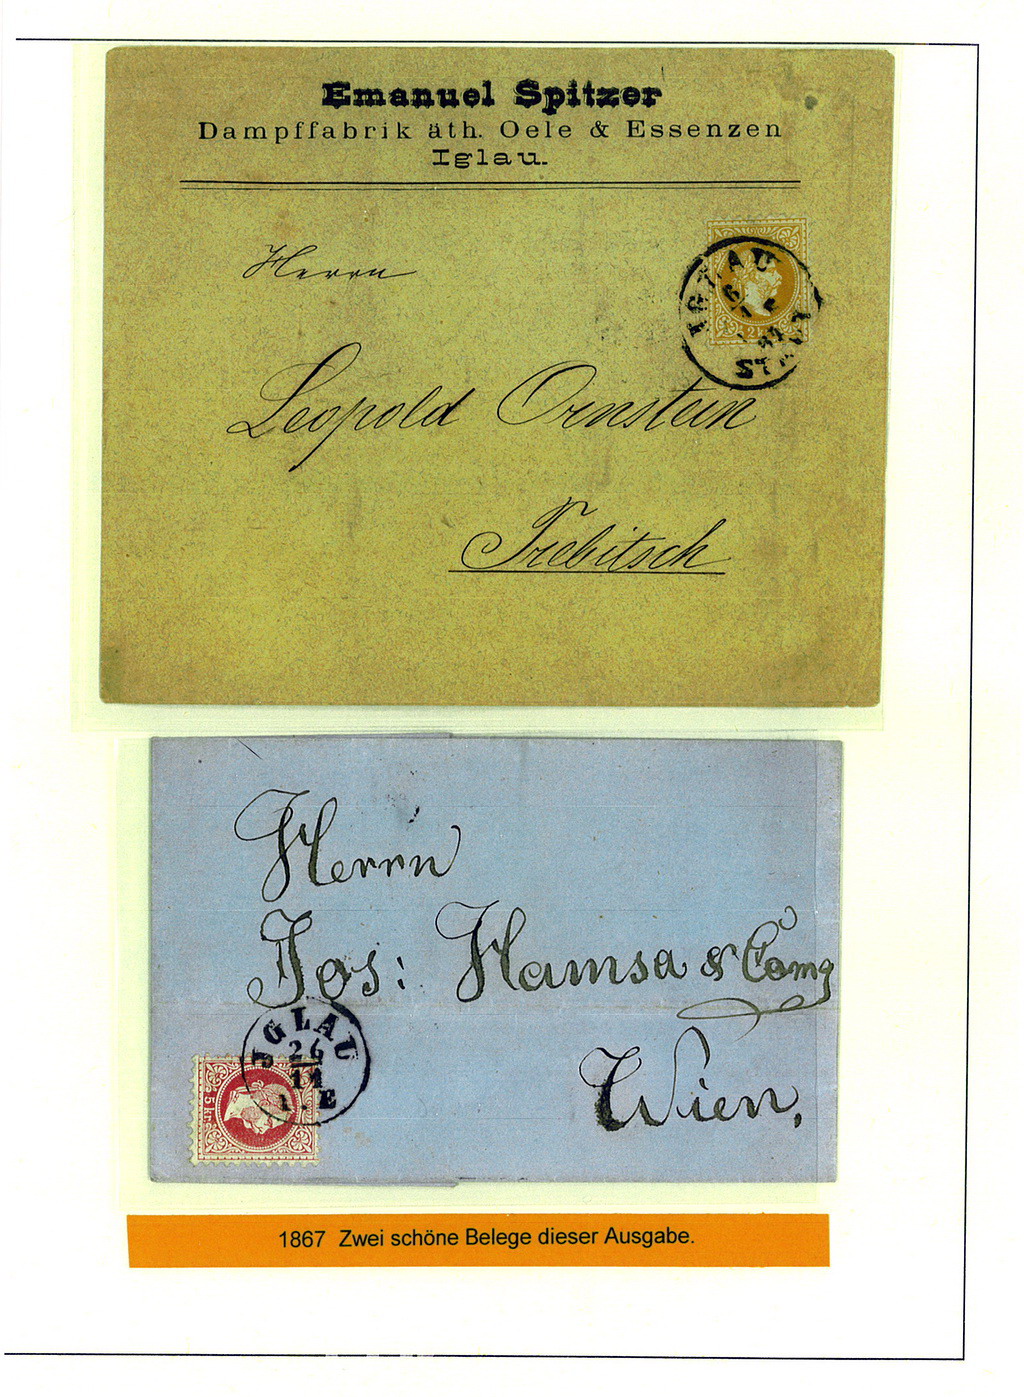 Emanuel Spitzer
Dampffabrik äth. Oele & Essenzen
Iglau.
Herrn
IGLAU
6
STADT
Leopold Ornstein
Trebitsch
Herrn
Jos: Hamsa & Comp
Wien,
IGLAU
26
11
1. E
5 kr.
1867 Zwei schöne Belege dieser Ausgabe.